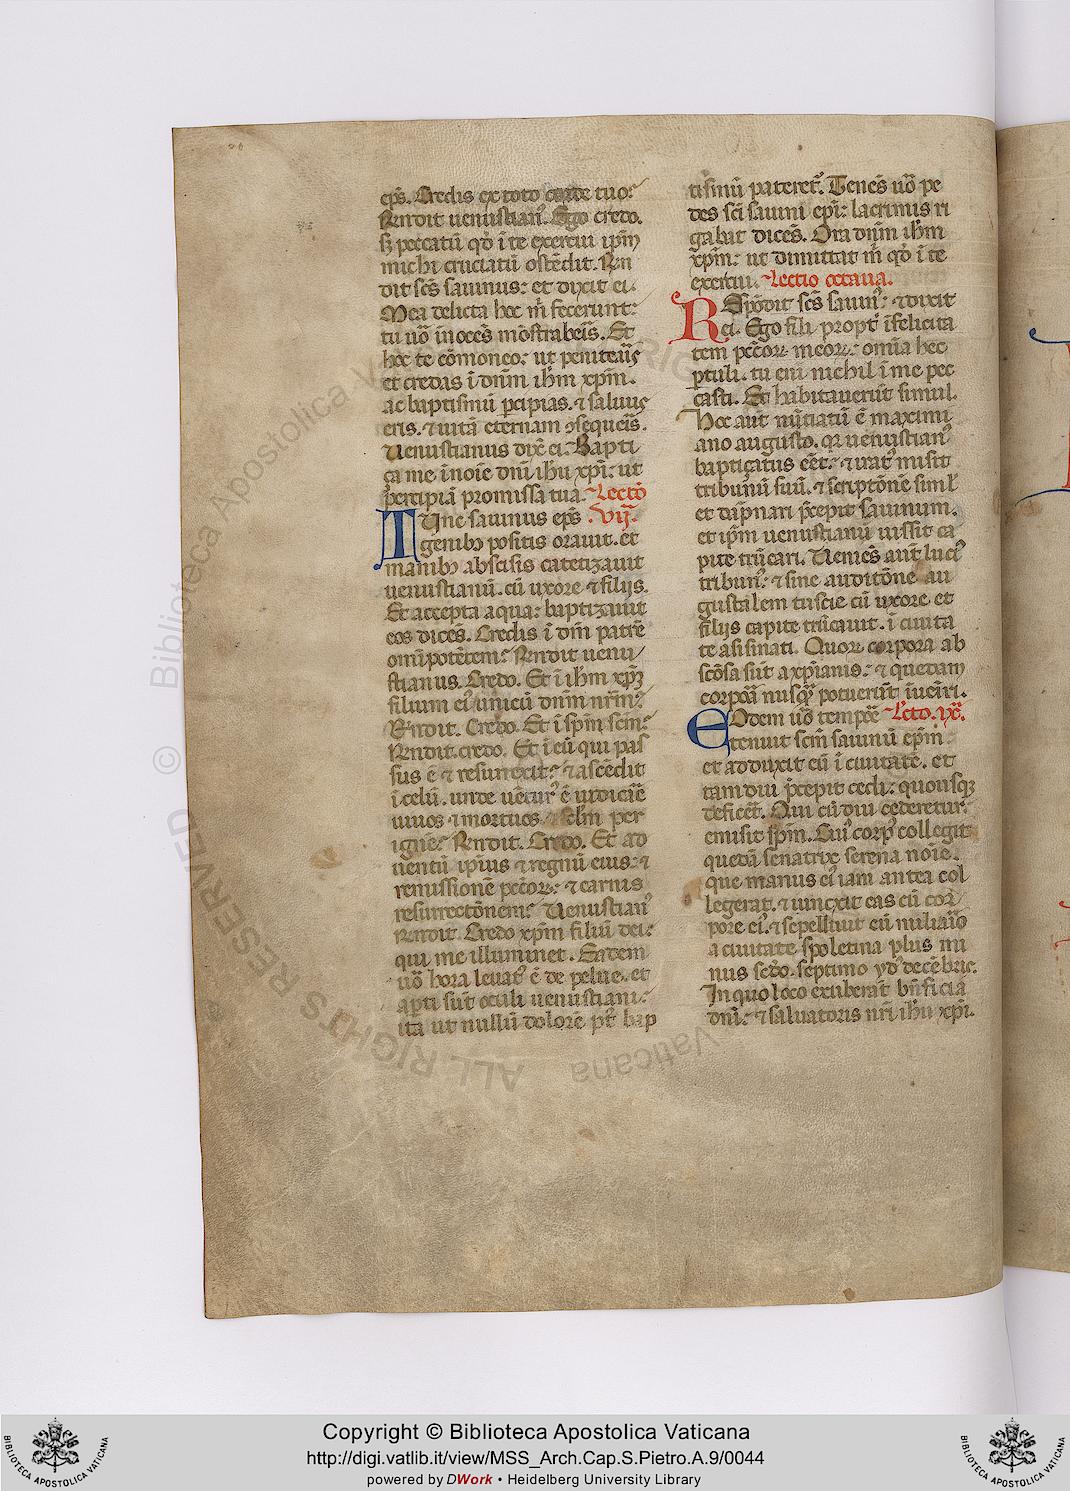 ep̄s. Credis ex toto corde tuo?
Rñdit uenustian᷒. Ego credo.
sꝫ peccatū qđ ī te exercui ip̄m
michi cruciatū ostēdit. Rñ
dit sc̄s sauinus: et dixit ei.
Mea delicta hec m̄ fecerunt:
tu uō īnocēs mōstraberis. Et
hec te cōmoneo: ut peniteas
et credas ī dn̄m ih̄m xp̄m.
ac baptismū ꝑcipias. ⁊ saluus
eris. ⁊ uitā eternam ꝯsequeris.
Uenustianus dix̄ ei. Bapti
ça me ī noīe dn̄i ih̄u xp̄i: ut
percipiā promissa tua. Lectō
TUnc sauinus ep̄s .vij.
genibꝫ positis orauit. et
manibꝫ abscisis catetizauit
uenustianū. cū uxore ⁊ filijs.
Et accepta aqua: baptizauit
eos dicēs. Credis ī dm̄ patrē
omīpotētem? Rñdit uenu
stianus. Credo. Et ī ih̄m xp̄m
filium ei᷒ unicū dn̄m nr̄m?
Rñdit. Credo. Et ī sp̄m sc̄m?
Rñdit. credo. Et ī eū qui pas
sus ē ⁊ resurrexit: ⁊ ascēdit
ī celū. unde uētur᷒ ē iudicāe
uiuos ⁊ mortuos ⁊ sc̄lm per
ignē? Rñdit. Credo. Et ad
uentū ip̄ius ⁊ regnū eius: ⁊
remissionē pc̄coꝝ: ⁊ carnis
resurrectōnem? Uenustian᷒
rñdit. Credo xp̄m filiū dei:
qui me illuminet. Eadem
uō hora leuat᷒ ē de pelue. et
aꝑti sūt oculi uenustiani:
ita ut nullū dolorē p᷒t bap
tismū pateret᷒. Tenēs uō pe
des sc̄i sauini ep̄i: lacrimis ri
gabat dicēs. Ora dn̄m ih̄m
xp̄m: ut dimittat m̄ qđ ī te
exercui. Lectio octaua.
REspōdit sc̄s sauin᷒: ⁊ dixit
ei. Ego fili propt᷒ īfelicita
tem pc̄coꝝ meoꝝ: om̄ia hec
ꝑtuli. tu eni nichil ī me pec
casti. Et habitauerūt simul.
Hoc aūt nūtiatū ē maximi
ano augusto. qꝛ uenustian᷒
baptiçatus eēt: ⁊ irat᷒ misit
tribunū suū. ⁊ scriptōne siml᷒
et dāpnari p̄cepit sauinum.
et ip̄m uenustianū iussit ca
pite trūcari. Ueniēs aūt luci᷒
tribun᷒: ⁊ sine auditōne au
gustalem tuscie cū uxore et
filijs capite trūcauit. ī ciuita
te asisinati. Quoꝝ corpora ab
scōsa sūt a xp̄ianis: ⁊ quedam
corpoā nusqꝫ potuerūt īueīri.
EOdem uō tempoē Lc̄to. ix.
tenuit sc̄m sauinū ep̄m
et adduxit eū ī ciuitatē. et
tam diu p̄cepit cedi: quousqꝫ
deficēt. Qui cū diu cederetur:
emisit sp̄m. Cui᷒ corp᷒ collegit
quedā senatrix serena noīe.
que manus ei᷒ iam antea col
legerat. ⁊ iunxit eas cū cor
pore ei᷒. ⁊ sepelliuit eū miliaīo
a ciuitate spoletina plus mi
nus scđo. septimo yđ decēbris.
In quo loco exuberāt bn̄ficia
dn̄i: ⁊ saluatoris nr̄i ih̄u xp̄i.
© Biblioteca Apostolica Vaticana ALL RIGHTS RESERVED
Copyright © Biblioteca Apostolica Vaticana
http://digi.vatlib.it/view/MSS_Arch.Cap.S.Pietro.A.9/0044
powered by DWork • Heidelberg University Library
BIBLIOTECA APOSTOLICA VATICANA
BIBLIOTECA APOSTOLICA VATICANA